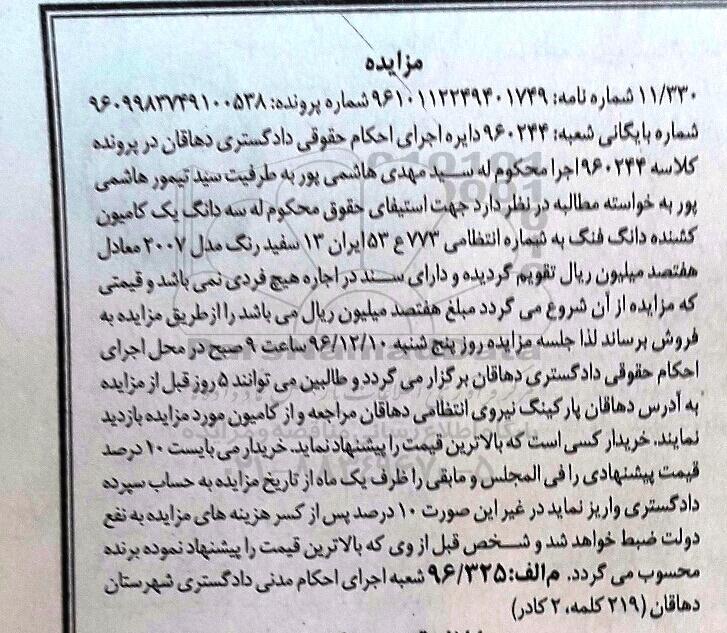 مزایده
۱۱/۳۳۰ شماره نامه: ۹۶۱۰۱۱۲۲۴۹۴۰۱۷۴۹ شماره پرونده: ۹۶۰۹۹۸۳۷۴۹۱۰۰۵۳۸
شماره بایگانی شعبه: ۹۶۰۲۴۴ دایره اجرای احکام حقوقی دادگستری دهاقان در پرونده
کلاسه ۹۶۰۲۴۴ اجرا محکوم له سید مهدی هاشمی پور به طرفیت سید تیمور هاشمی
پور به خواسته مطالبه در نظر دارد جهت استیفای حقوق محکوم له سه دانگ یک کامیون
کشنده دانگ فنگ به شماره انتظامی ۷۷۳ع ۵۳ ایران ۱۳ سفید رنگ مدل ۲۰۰۷ معادل
هفتصد میلیون ریال تقویم گردیده و دارای سند در اجاره هیچ فردی نمی باشد و قیمتی
که مزایده از آن شروع می گردد مبلغ هفتصد میلیون ریال می باشد را از طریق مزایده به
فروش برساند لذا جلسه مزایده روز پنج شنبه ۹۶/۱۲/۱۰ ساعت ۹ صبح در محل اجرای
احکام حقوقی دادگستری دهاقان برگزار می گردد و طالبین می توانند ۵ روز قبل از مزایده
به آدرس دهاقان پارکینگ نیروی انتظامی دهاقان مراجعه و از کامیون مورد مزایده بازدید
نمایند. خریدار کسی است که بالاترین قیمت را پیشنهاد نماید. خریدار می بایست ۱۰ درصد
قیمت پیشنهادی را فی المجلس و مابقی را ظرف یک ماه از تاریخ مزایده به حساب سپرده
دادگستری واریز نماید در غیر این صورت ۱۰ درصد پس از کسر هزینه های مزایده به نفع
دولت ضبط خواهد شد و شخص قبل از وی که بالاترین قیمت را پیشنهاد نموده برنده
محسوب می گردد. م الف: ۹۶/۳۲۵ شعبه اجرای احکام مدنی دادگستری شهرستان
دهاقان (۲۱۹ کلمه، ۲ کادر)